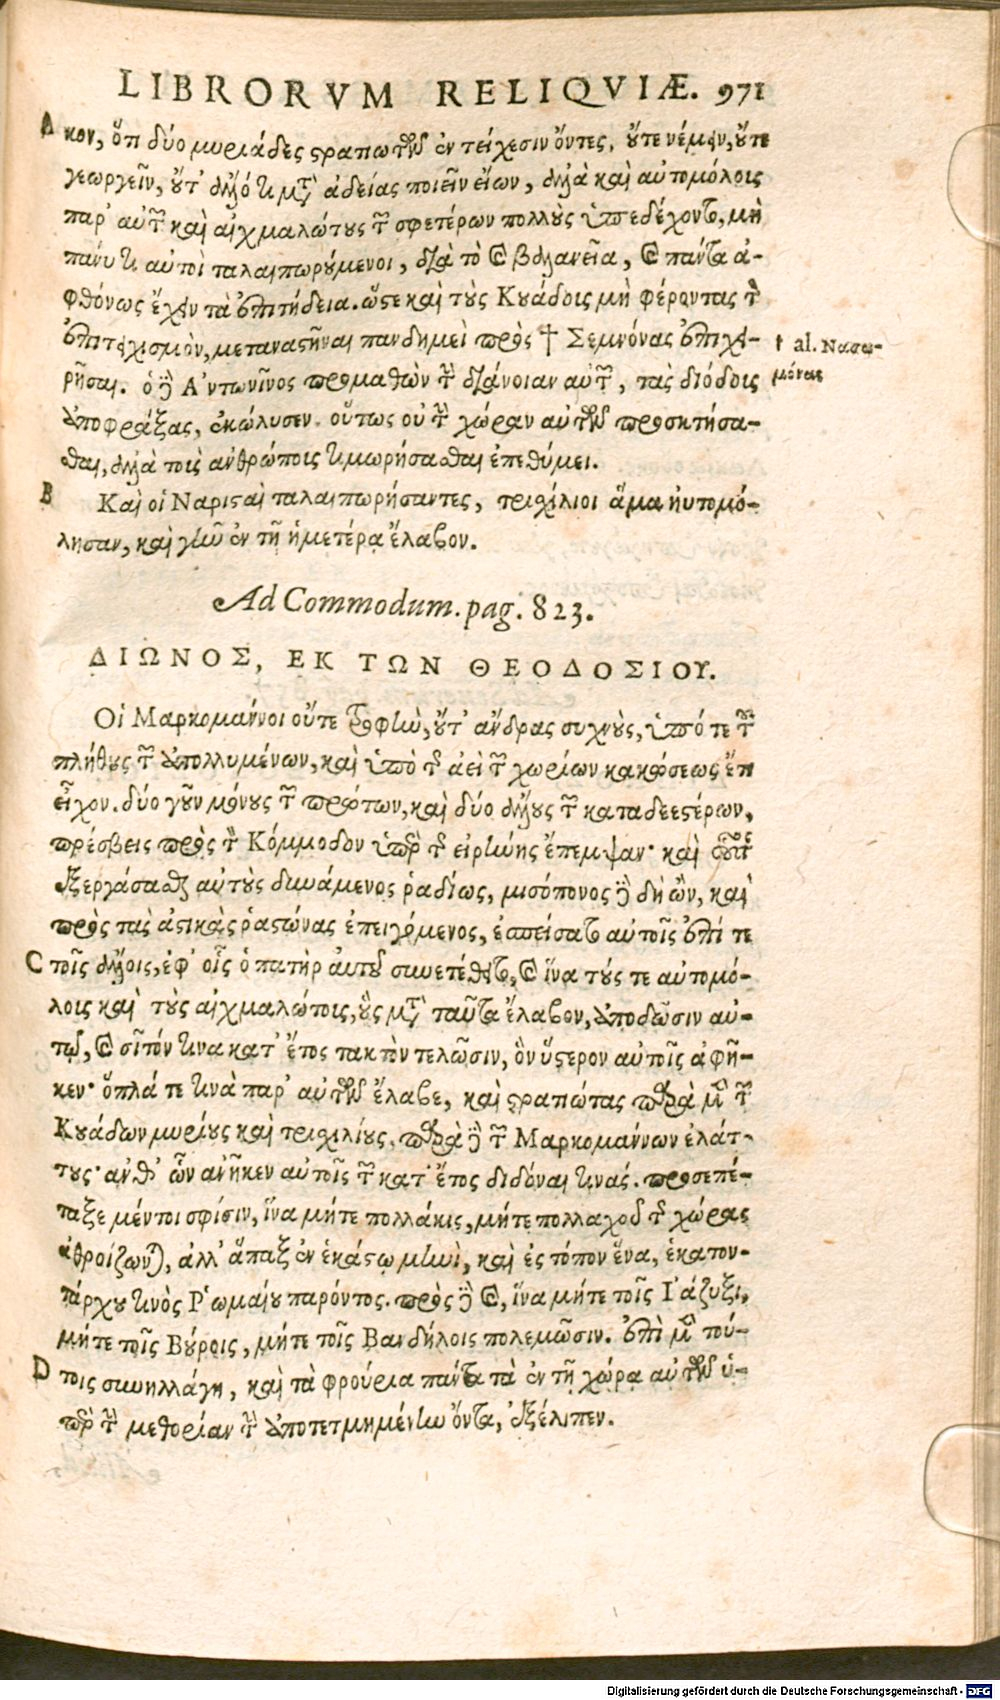 LIBRORVM RELIQVIÆ. 971
A κον, ὅτι δύο μυριάδες στρατιωτῶν ἐν τείχεσιν ὄντες, οὔτε νέμειν, οὔτε
γεωργεῖν, οὔτ' ἄλλό τι μετ' ἀδείας ποιεῖν εἴων, ἀλλὰ καὶ αὐτομόλοις
παρ' αὐτῶν καὶ αἰχμαλώτους τῶν σφετέρων πολλοὺς ὑπεδέχοντο, μὴ
πάνυ τι αὐτοὶ ταλαιπωρούμενοι, διὰ τὸ καὶ βαλανεῖα, καὶ πάντα ἀ-
φθόνως ἔχειν τὰ ἐπιτήδεια. ὥστε καὶ τοὺς Κυάδοις μὴ φέροντας τὸν
ἐπιτειχισμὸν, μεταναστῆναι πανδημεὶ πρὸς † Σεμνόνας ἐπιχει-
† al. Νασω-
μόνας
ρῆσαι. ὁ δὲ Ἀντωνῖνος προμαθὼν τὴν διάνοιαν αὐτῶν, τὰς διόδοις
ἀποφράξας, ἐκώλυσεν. οὕτως οὐ τὴν χώραν αὐτῶν προσκτήσα-
σθαι, ἀλλὰ τοὶς ἀνθρώποις τιμωρήσασθαι ἐπεθύμει.
B Καὶ οἱ Ναρισταὶ ταλαιπωρήσαντες, τρισχίλιοι ἅμα ηὐτομό-
λησαν, καὶ γῆν ἐν τῇ ἡμετέρᾳ ἔλαβον.
Ad Commodum. pag. 823.
ΔΙΩΝΟΣ, ΕΚ ΤΩΝ ΘΕΟΔΟΣΙΟΥ.
Οἱ Μαρκομάννοι οὔτε τροφὴν, οὔτ' ἄνδρας συχνοὺς, ὑπό τε τοῦ
πλήθους τῶν ἀπολλυμένων, καὶ ὑπὸ τῆς ἀεὶ τῶν χωρίων κακώσεως ἔτι
εἶχον. δύο γοῦν μόνους τῶν πρώτων, καὶ δύο ἄλλους τῶν καταδεεστέρων,
πρέσβεις πρὸς τὸν Κόμμοδον ὑπὲρ τῆς εἰρήνης ἔπεμψαν· καὶ
ἐξεργάσασθαι αὐτοὺς δυνάμενος ῥαδίως, μισόπονος δὲ δὴ ὢν, καὶ
πρὸς ταὶς ἀστικὰς ῥαστώνας ἐπειγόμενος, ἐσπείσατο αὐτοῖς ἐπί τε
C τοῖς ἄλλοις, ἐφ' οἷς ὁ πατὴρ αὐτοῦ συνετέθειτο, καὶ ἵνα τούς τε αὐτομό-
λοις καὶ τοὺς αἰχμαλώτοις, οὓς μετὰ ταῦτα ἔλαβον, ἀποδῶσιν αὐ-
τῷ, καὶ σῖτόν τινα κατ' ἔτος τακτὸν τελῶσιν, ὃν ὕστερον αὐτοῖς ἀφῆ-
κεν· ὅπλά τε τινὰ παρ' αὐτῶν ἔλαβε, καὶ στρατιώτας παρὰ μὲν τῶν
Κυάδων μυρίους καὶ τρισχιλίους, παρὰ δὲ τῶν Μαρκομάννων ἐλάτ-
τους· ἀνθ' ὧν ἀνῆκεν αὐτοῖς τῶν κατ' ἔτος διδόναι τινάς. προσεπέ-
ταξε μέντοι σφίσιν, ἵνα μήτε πολλάκις, μήτε πολλαχοῦ τῆς χώρας
ἀθροίζωνται, ἀλλ' ἅπαξ ἐν ἑκάστῳ μηνὶ, καὶ ἐς τόπον ἕνα, ἑκατον-
τάρχου τινὸς Ῥωμαίου παρόντος. πρὸς δὲ καὶ, ἵνα μήτε τοῖς Ἰάζυξι,
μήτε τοῖς Βούροις, μήτε τοῖς Βανδήλοις πολεμῶσιν. ἐπὶ μὲν τού-
D τοις συνηλλάγη, καὶ τὰ φρούρια πάντα τὰ ἐν τῇ χώρᾳ αὐτῶν ὑ-
πὲρ τὴν μεθορίαν τὴν ἀποτετμημένην ὄντα, ἐξέλιπεν.
Digitalisierung gefördert durch die Deutsche Forschungsgemeinschaft - DFG